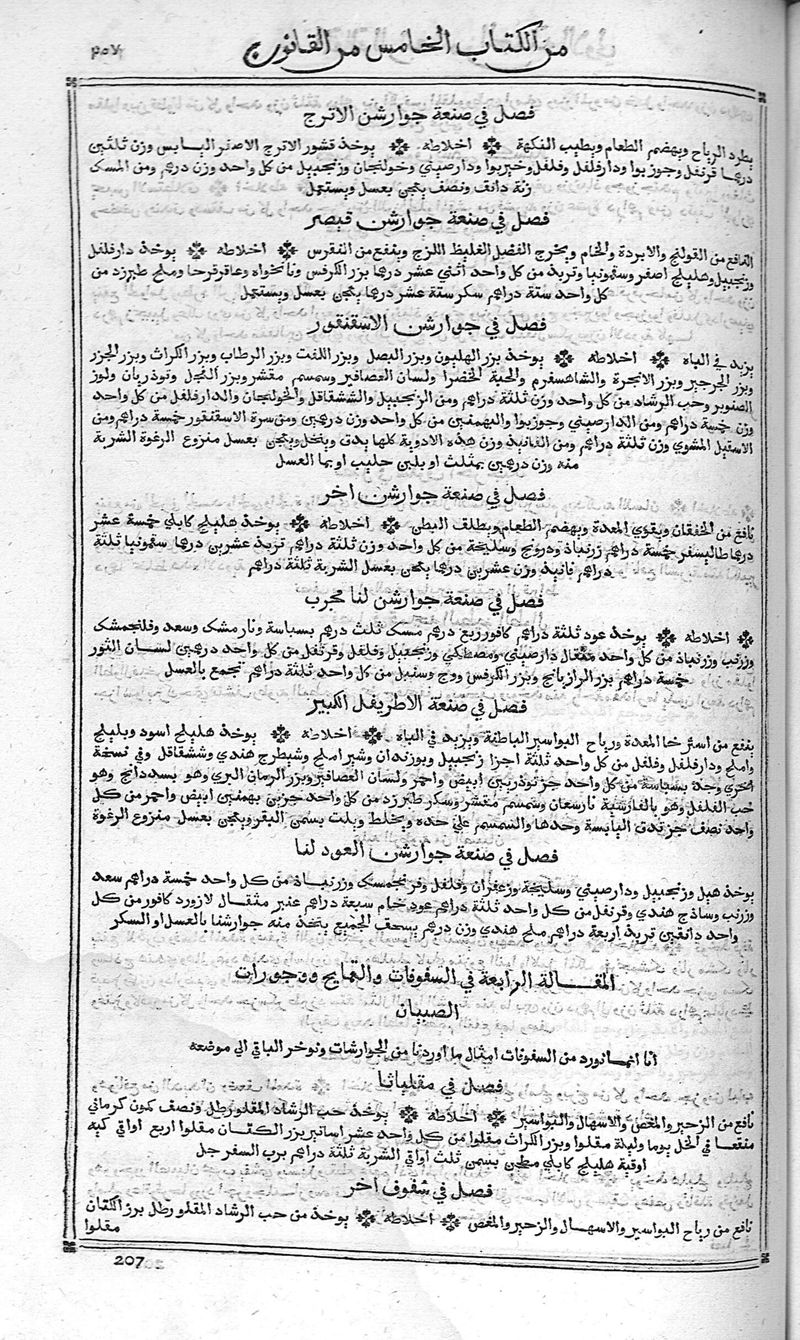 من الكتاب الخامس من القانون
فصل في صنعة جوارشن الاترج
يطرد الرياح ويهضم الطعام ويطيب النكهة اخلاطه يوخذ قشور الاترج الاصفر اليابس وزن ثلثين
درهما قرنفل وجوزبوا ودارفلفل وفلفل وخيربوا ودارصيني وخولنجان وزنجبيل من كل واحد وزن درهم ومن المسك
زنة دانف ونصف يعجن بعسل ويستعمل
فصل في صنعة جوارشن قيصر
النافع من القولنج والابردة والخام ويخرج الفضل الغليظ اللزج وينفع من النقرس اخلاطه يوخذ دارفلفل
وزنجبيل وهليلج اصفر وسقمونيا وتربد من كل واحد اثني عشر درهما بزر الكرفس ونانخواه وعاقرقرحا وملح طبرزد من
كل واحد ستة دراهم سكر ستة عشر درهما يعجن بعسل ويستعمل
فصل في جوارشن الاسقنقور
يزيد في الباه اخلاطه يوخذ بزر الهليون وبزر البصل وبزر اللفت وبزر الرطاب وبزر الكراث وبزر الجزر
وبزر الجرجير وبزر الانجرة والشاهسفرم والحبة الخضرا ولسان العصافير وسمسم مقشر وبزر الفجل وتوذريان ولوز
الصنوبر وحب الرشاد من كل واحد وزن ثلثة دراهم ومن الزنجبيل والشقاقل والخولنجان والدارفلفل من كل واحد
وزن خمسة دراهم ومن الدارصيني وجوزبوا والبهمنين من كل واحد وزن درهمين ومن سرة الاسقنقور خمسة دراهم ومن
الاسقيل المشوي وزن ثلثة دراهم ومن الفانيذ وزن هذه الادوية كلها يدق وينخل ويعجن بعسل منزوع الرغوة الشربة
منه وزن درهمين بمثلث او بلبن حليب او بما العسل
فصل في صنعة جوارشن اخر
نافع من الخفقان ويقوي المعدة ويهضم الطعام ويطلق البطن اخلاطه يوخذ هليلج كابلي خمسة عشر
درهما طاليسفر خمسة دراهم زرنباذ ودرونج وسليخة من كل واحد وزن ثلثة دراهم تربد عشرين درهما سقمونيا ثلثة
دراهم فانيذ وزن عشرين درهما يعجن بعسل الشربة ثلثة دراهم
فصل في صنعة جوارشن لنا مجرب
اخلاطه يوخذ عود ثلثة دراهم كافور ربع درهم مسك ثلث درهم بسباسة ونارمشك وسعد وفلنجمشك
وزرنب وزرنباذ من كل واحد مثقال دارصيني ومصطكي وزنجبيل وفلفل وقرنفل من كل واحد درهمين لسان الثور
خمسة دراهم بزر الرازيانج وبزر الكرفس ووج وسنبل من كل واحد ثلثة دراهم تجمع بالعسل
فصل في صنعة الاطريفل الكبير
ينفع من استرخا المعدة ورياح البواسير الباطنة ويزيد في الباه اخلاطه يوخذ هليلج اسود وبليلج
واملج ودارفلفل وفلفل من كل واحد ثلثة اجزا زنجبيل وبوزندان وشير املج وشيطرج هندي وشقاقل وفي نسخة
اخري وجد بسباسة من كل واحد جز توذريين ابيض واحمر ولسان العصافير وبزر الرمان البري وهو بسددانج وهو
حب الفلفل وهو بالفارسية نارسعان وسمسم مقشر وسكر طبرزد من كل واحد جزين بهمنين ابيض واحمر من كل
واحد نصف جز تدق اليابسة وحدها والسمسم علي حدة ويخلط ويلت بسمن البقر ويعجن بعسل منزوع الرغوة
فصل في صنعة جوارشن العود لنا
يوخذ هيل وزنجبيل ودارصيني وسليخة وزعفران وفلفل وفرنجمسك وزرنباذ من كل واحد خمسة دراهم سعد
وزرنب وساذج هندي وقرنفل من كل واحد ثلثة دراهم عود خام سبعة دراهم عنبر مثقال لازورد كافور من كل
واحد دانقين تربد اربعة دراهم ملح هندي وزن درهم يسحف الجميع يتخذ منه جوارشنا بالعسل او السكر
المقالة الرابعة في السفوفات والقمايح ووجورات
الصبيان
انا انما نورد من السفوفات امثال ما اوردنا من الجوارشات ونوخر الباقي الي موضعه
فصل في مقلياثا
نافع من الزحير والمغص والاسهال والبواسير اخلاطه يوخذ حب الرشاد المقلو رطل ونصف كمون كرماني
منقعا في الخل يوما وليلة مقلوا وبزر الكراث مقلوا من كل واحد عشر اساتير بزر الكتان مقلوا اربع اواقي كيه
اوقية هليلج كابلي مطجن بسمن ثلث اواقي الشربة ثلثة دراهم برب السفرجل
فصل في سفوف اخر
نافع من رياح البواسير والاسهال والزحير والمغص اخلاطه يوخذ من حب الرشاد المقلو رطل بزر الكتان
مقلوا
207